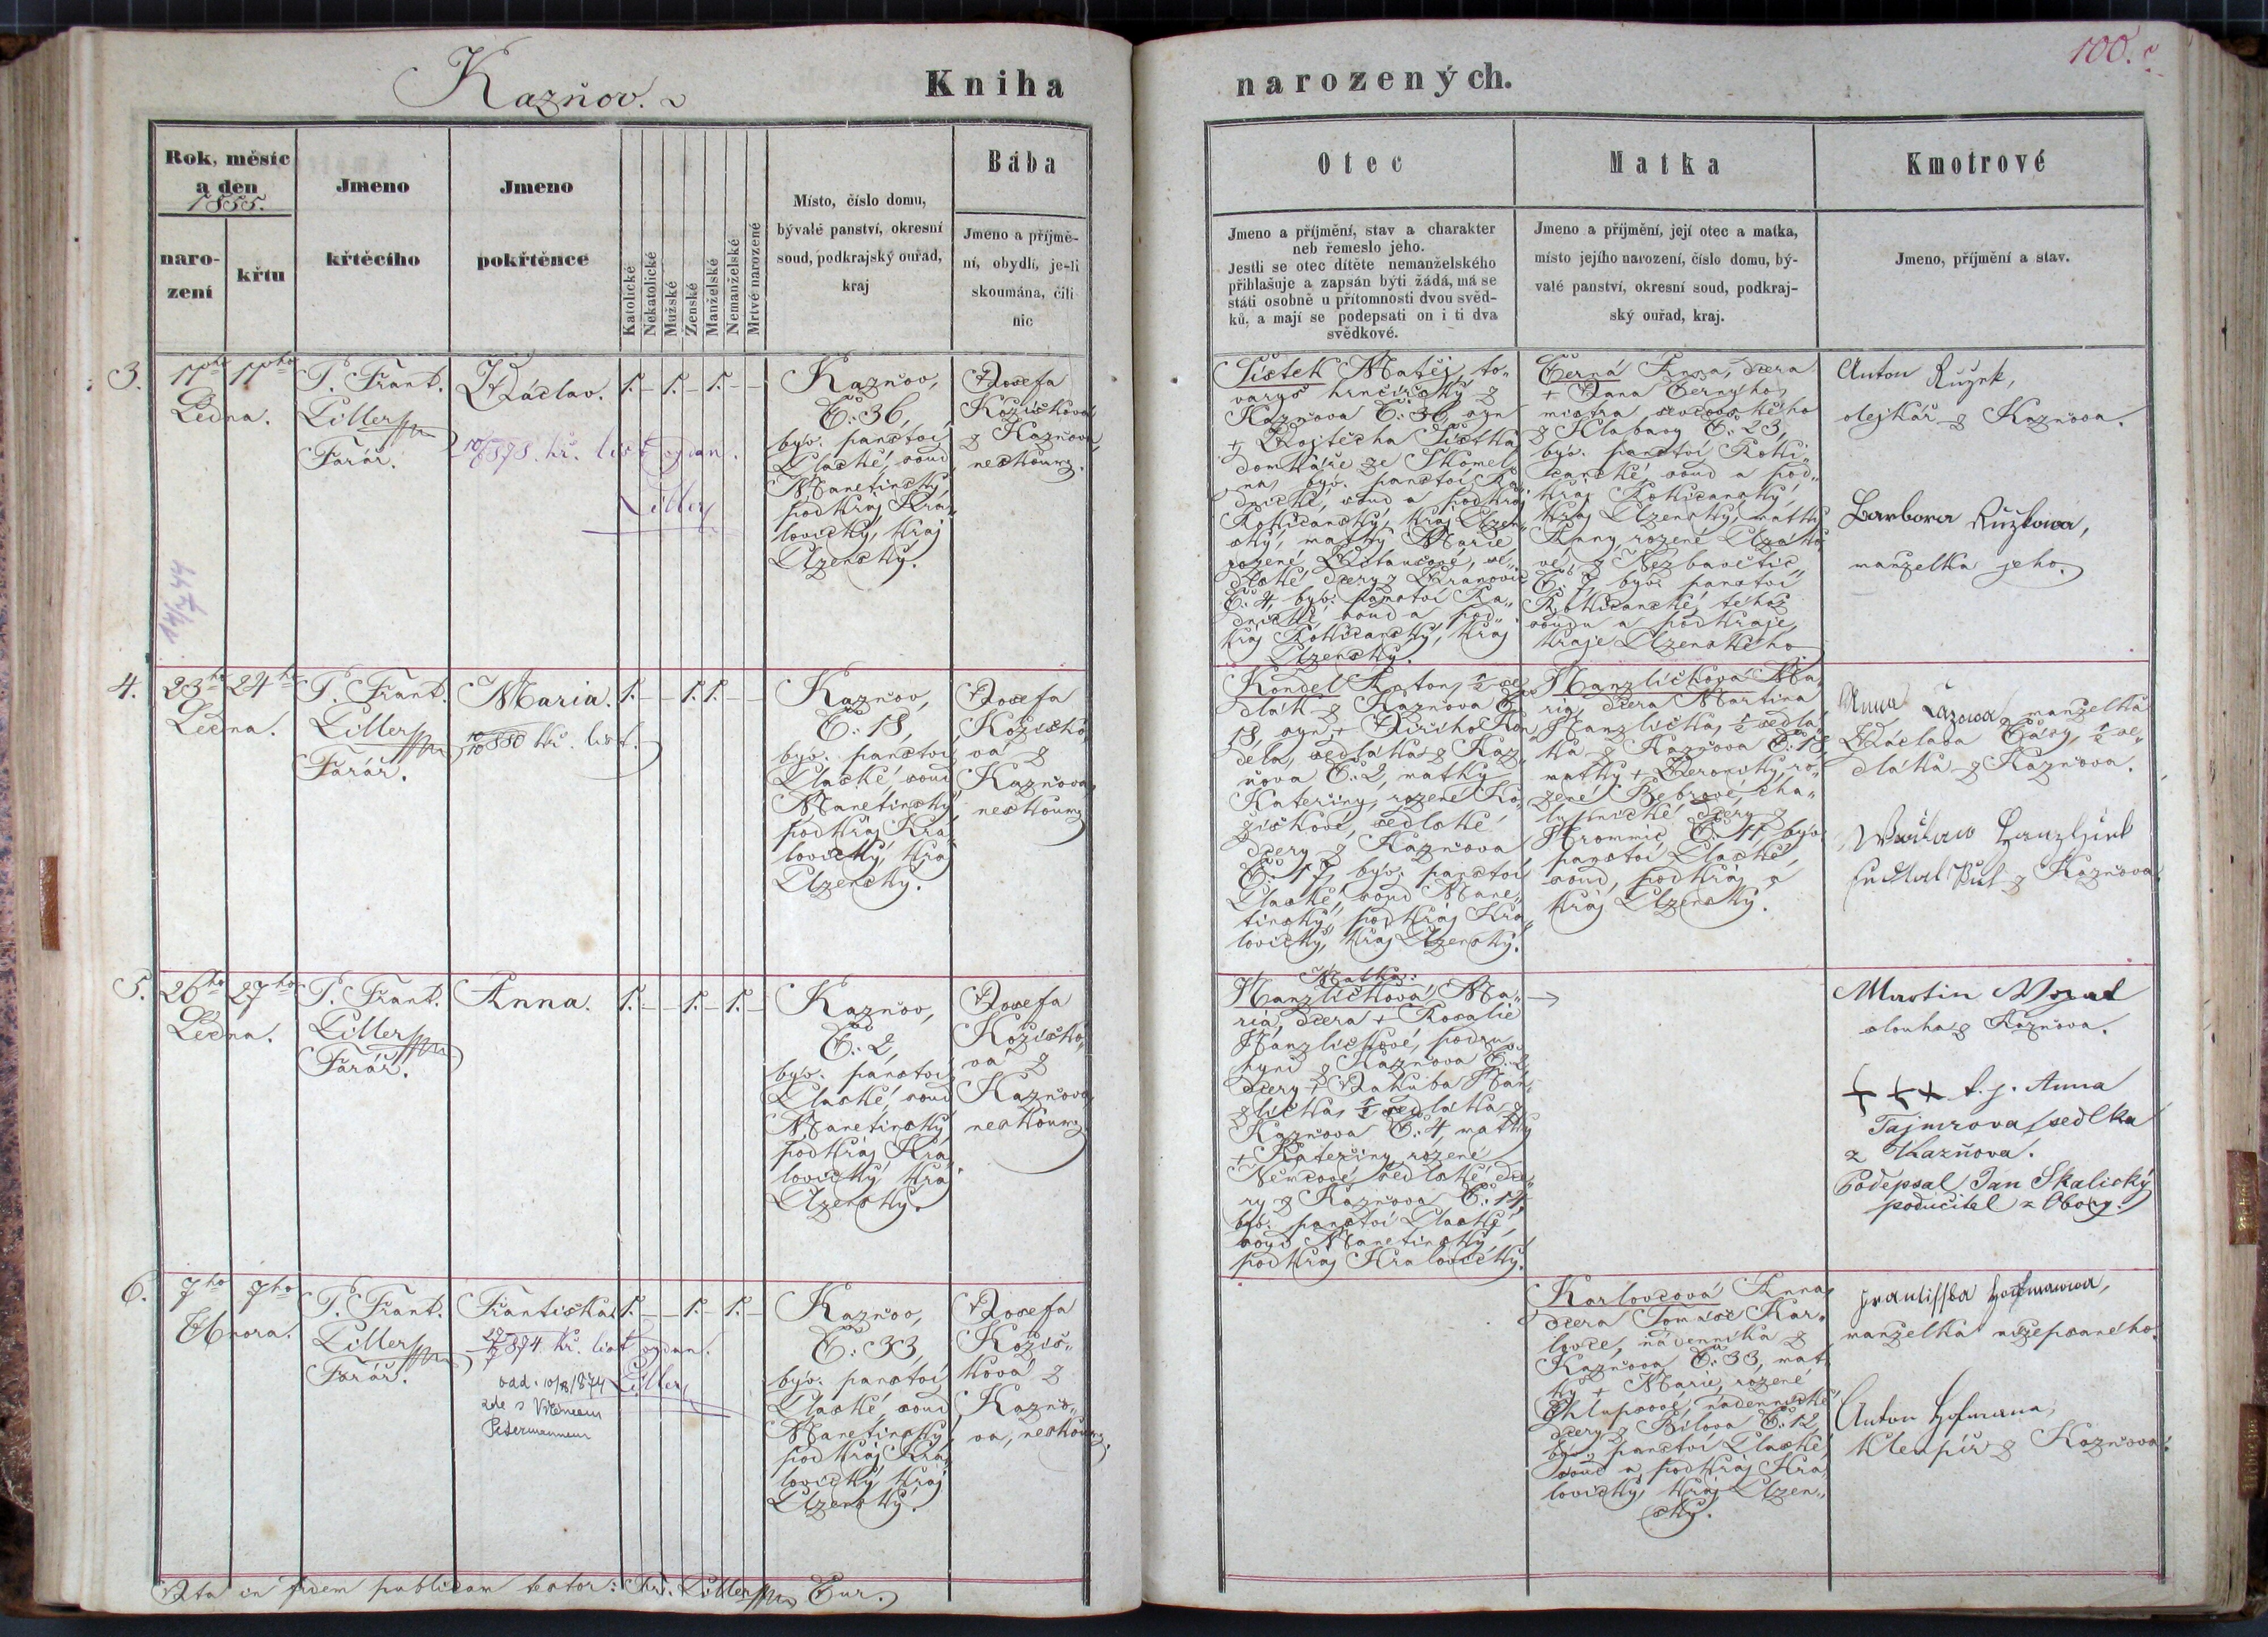 Kazňov.
Kniha
narozených.
100.
Rok, měsíc
a den
1855.
naro-
zení
křtu
Jmeno
křtěcího
Jmeno
pokřtěnce
Katolické
Nekatolické
Mužské
Ženské
Manželské
Nemanželské
Mrtvé narozené
Místo, číslo domu,
bývalé panství, okresní
soud, podkrajský ouřad,
kraj
Bába
Jmeno a příjmě-
ní, obydlí, je-li
skoumána, čili
nic
Otec
Jmeno a příjmění, stav a charakter
neb řemeslo jeho.
Jestli se otec dítěte nemanželského
přihlašuje a zapsán býti žádá, má se
státi osobně u přítomnosti dvou svěd-
ků, a mají se podepsati on i ti dva
svědkové.
Matka
Jmeno a příjmění, její otec a matka,
místo jejího narození, číslo domu, bý-
valé panství, okresní soud, podkraj-
ský ouřad, kraj.
Kmotrové
Jmeno, příjmění a stav.
3.
17ho 17ho
Ledna.
P. Frant.
Liller
Farář.
Václav.
10/8 878. kř. list vydan.
Liller
1. – 1. – 1. – –
Kazňov,
Č: 36,
býv. panství
Plaské, soud
Manetinský
podkráj Kra-
lovický, kráj
Plzenský.
Josefa
Kožíšková
z Kazňova,
neskoumz.
Šistek Matěj, to-
varyš hrnčířský z
Kazňova Č: 36, syn
+ Vojtěcha Šistka
domkáře ze Skomel-
na, býv. panství Ra-
dnické, soud a podkráj
Rokicanský, kráj Plzen-
ský, matky Marie
rozené
dcery z Vranovic
Č: 4, býv. panství Ra-
dnické, soud a pod-
kráj Rokicanský, kráj
Plzenský.
Černá Anna, dcera
+ Jana Černýho,
mistra ševcovského
z Klabavy Č: 23,
býv. panství Roki-
canské, soud a pod-
kráj Rokicanský,
kráj Plzenský, matky
Anny rozené
vé, z
Č: 7, býv. panství
Rokicanské, téhož
soudu a podkraje,
kraje Plzenského
Anton Ružek,
olejkář z Kazňova.
Barbora Ružkowa,
manželka jeho.
4.
23ho 24ho
Ledna.
P. Frant.
Liller
Farář.
Maria.
10/10 880 kř. list.
1. – – 1. 1. – –
Kazňov,
Č: 18,
býv. panství
Plaské, soud
Manetinský
podkráj Kra-
lovický, kráj
Plzenský.
Josefa
Kožíško-
vá z
Kazňova,
neskoumz
Kondel Anton, ½ se-
dlák z Kazňova Č:
18, syn + Jiřího Kon-
dela, sedláka z Kaz-
ňova Č: 2, matky
Kateřiny, rozené Ko-
žíškové, sedlské
dcery z Kazňova
Č: 17, býv. panství
Plaské, soud Mane-
tinský, podkráj Kra-
lovický, kráj Plzenský.
Hanzlíčkova Ma-
ria, dcera Martina
Hanzlíčka, ½ sedlá-
ka z Kazňova Č: 18,
matky + Veroniky, ro-
zené Bebrové, cha-
lupnické dcery z
Hromnic, Č: 11, býv.
panství Plaské,
soud, podkráj a
kráj Plzenský.
Anna Čazowa, manželka
Václava Čázy, ½ se-
dláka z Kazňova.
z Kazňova.
5.
26ho 27ho
Ledna.
P. Frant.
Liller
Farář.
Anna.
1. – – 1. – 1. –
Kazňov,
Č: 2,
býv. panství
Plaské, soud
Manetinský
podkráj Kra-
lovický kráj
Plzenský.
Josefa
Kožíško-
vá z
Kazňova,
neskoumz
Matka:
Hanzlíčkova, Ma-
ria, dcera + Rosalie
Hanzlíčkové, podru-
hyně z Kazňova Č: 2,
dcery + Jakuba Han-
zlíčka, ½ sedláka z
Kazňova Č: 4, matky
+ Kateřiny, rozené
Němcové, sedlské dce-
ry z Kazňova Č: 14,
býv. panství Plaské,
soud Manetinský,
podkráj Kralovický.
Martin
slouha z Kazňova.
+++ t. j. Anna
Tajmrova, sedlka
z Kazňova.
Podepsal Jan Skalický
podučitel z Obory.
6.
7ho 7ho
Února.
P. Frant.
Liller
Farář.
Františka.
27/7 874 kř. list vydan.
Liller
odd. 10/8/874
zde s Vilémem
Petermannem
1. – – 1. – 1. –
Kazňov,
Č: 33,
býv. panství
Plaské, soud
Manetinský
podkráj Kra-
lovický, kráj
Plzenský.
Josefa
Kožíš-
ková z
Kazňo-
va, neskoumz.
Karlovcová Anna,
dcera Tomáše Kar-
lovce, nádenníka z
Kazňova Č: 33, mat-
ky + Marie, rozené
Chlupsové, nádennické
dcery z Bilova Č: 12,
býv. panství Plaské,
soud a podkráj Kra-
lovický, kráj Plzen-
ský.
Frantisska Hoffmanowa,
manželka nížepsaného.
Anton Hofmann,
klempíř z Kazňova.
Ita in fidem publicam testor: Fr. Liller Cur.